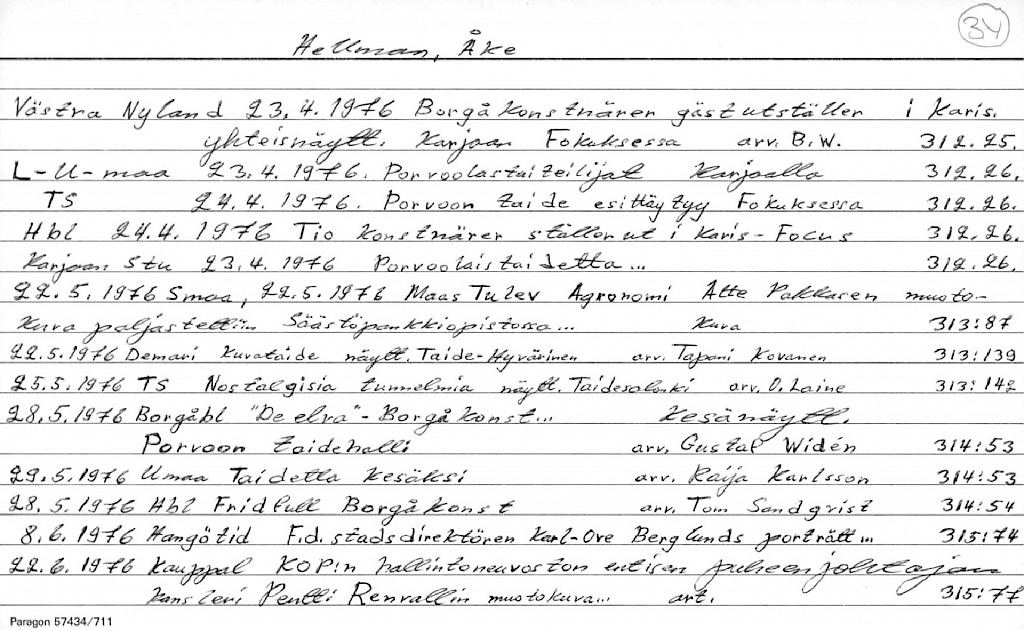 34
Hellman, Åke
Västra Nyland 23.4.1976 Borgå konstnärer gästutställer i Karis.
yhteisnäytt. Karjaan Fokuksessa arv. B.W. 312.25.
L-U-maa 23.4.1976. Porvoolastaiteilijat Karjaalla 312.26.
TS 24.4.1976. Porvoon taide esittäytyy Fokuksessa 312.26.
Hbl 24.4.1976 Tio konstnärer ställer ut i Karis-Focus 312.26.
Karjaan Stu 23.4.1976 Porvoolaistaidetta... 312.26.
22.5.1976 Smaa, 22.5.1976 MaasTulev Agronomi Atte Pakkasen muoto-
kuva paljastettiin Säästöpankkiopistossa... kuva 313:87
22.5.1976 Demari Kuvataide näytt. Taide-Hyvärinen arv. Tapani Kovanen 313:139
25.5.1976 TS Nostalgisia tunnelmia näytt. Taidesalonki arv. O. Laine 313:142
28.5.1976 Borgåbl "De elva"- Borgå konst... Kesänäytt.
Porvoon taidehalli arv. Gustaf Widén 314:53
29.5.1976 Umaa Taidetta kesäksi arv. Raija Karlsson 314:53
28.5.1976 Hbl Fridfull Borgåkonst arv. Tom Sandqvist 314:54
8.6.1976 Hangötid F.d. stadsdirektören Karl-Ove Berglunds porträtt... 315:74
22.6.1976 Kauppal KOP:n hallintoneuvoston entisen puheenjohtajan
kansleri Pentti Renvallin muotokuva... art. 315:77
Paragon 57434/711